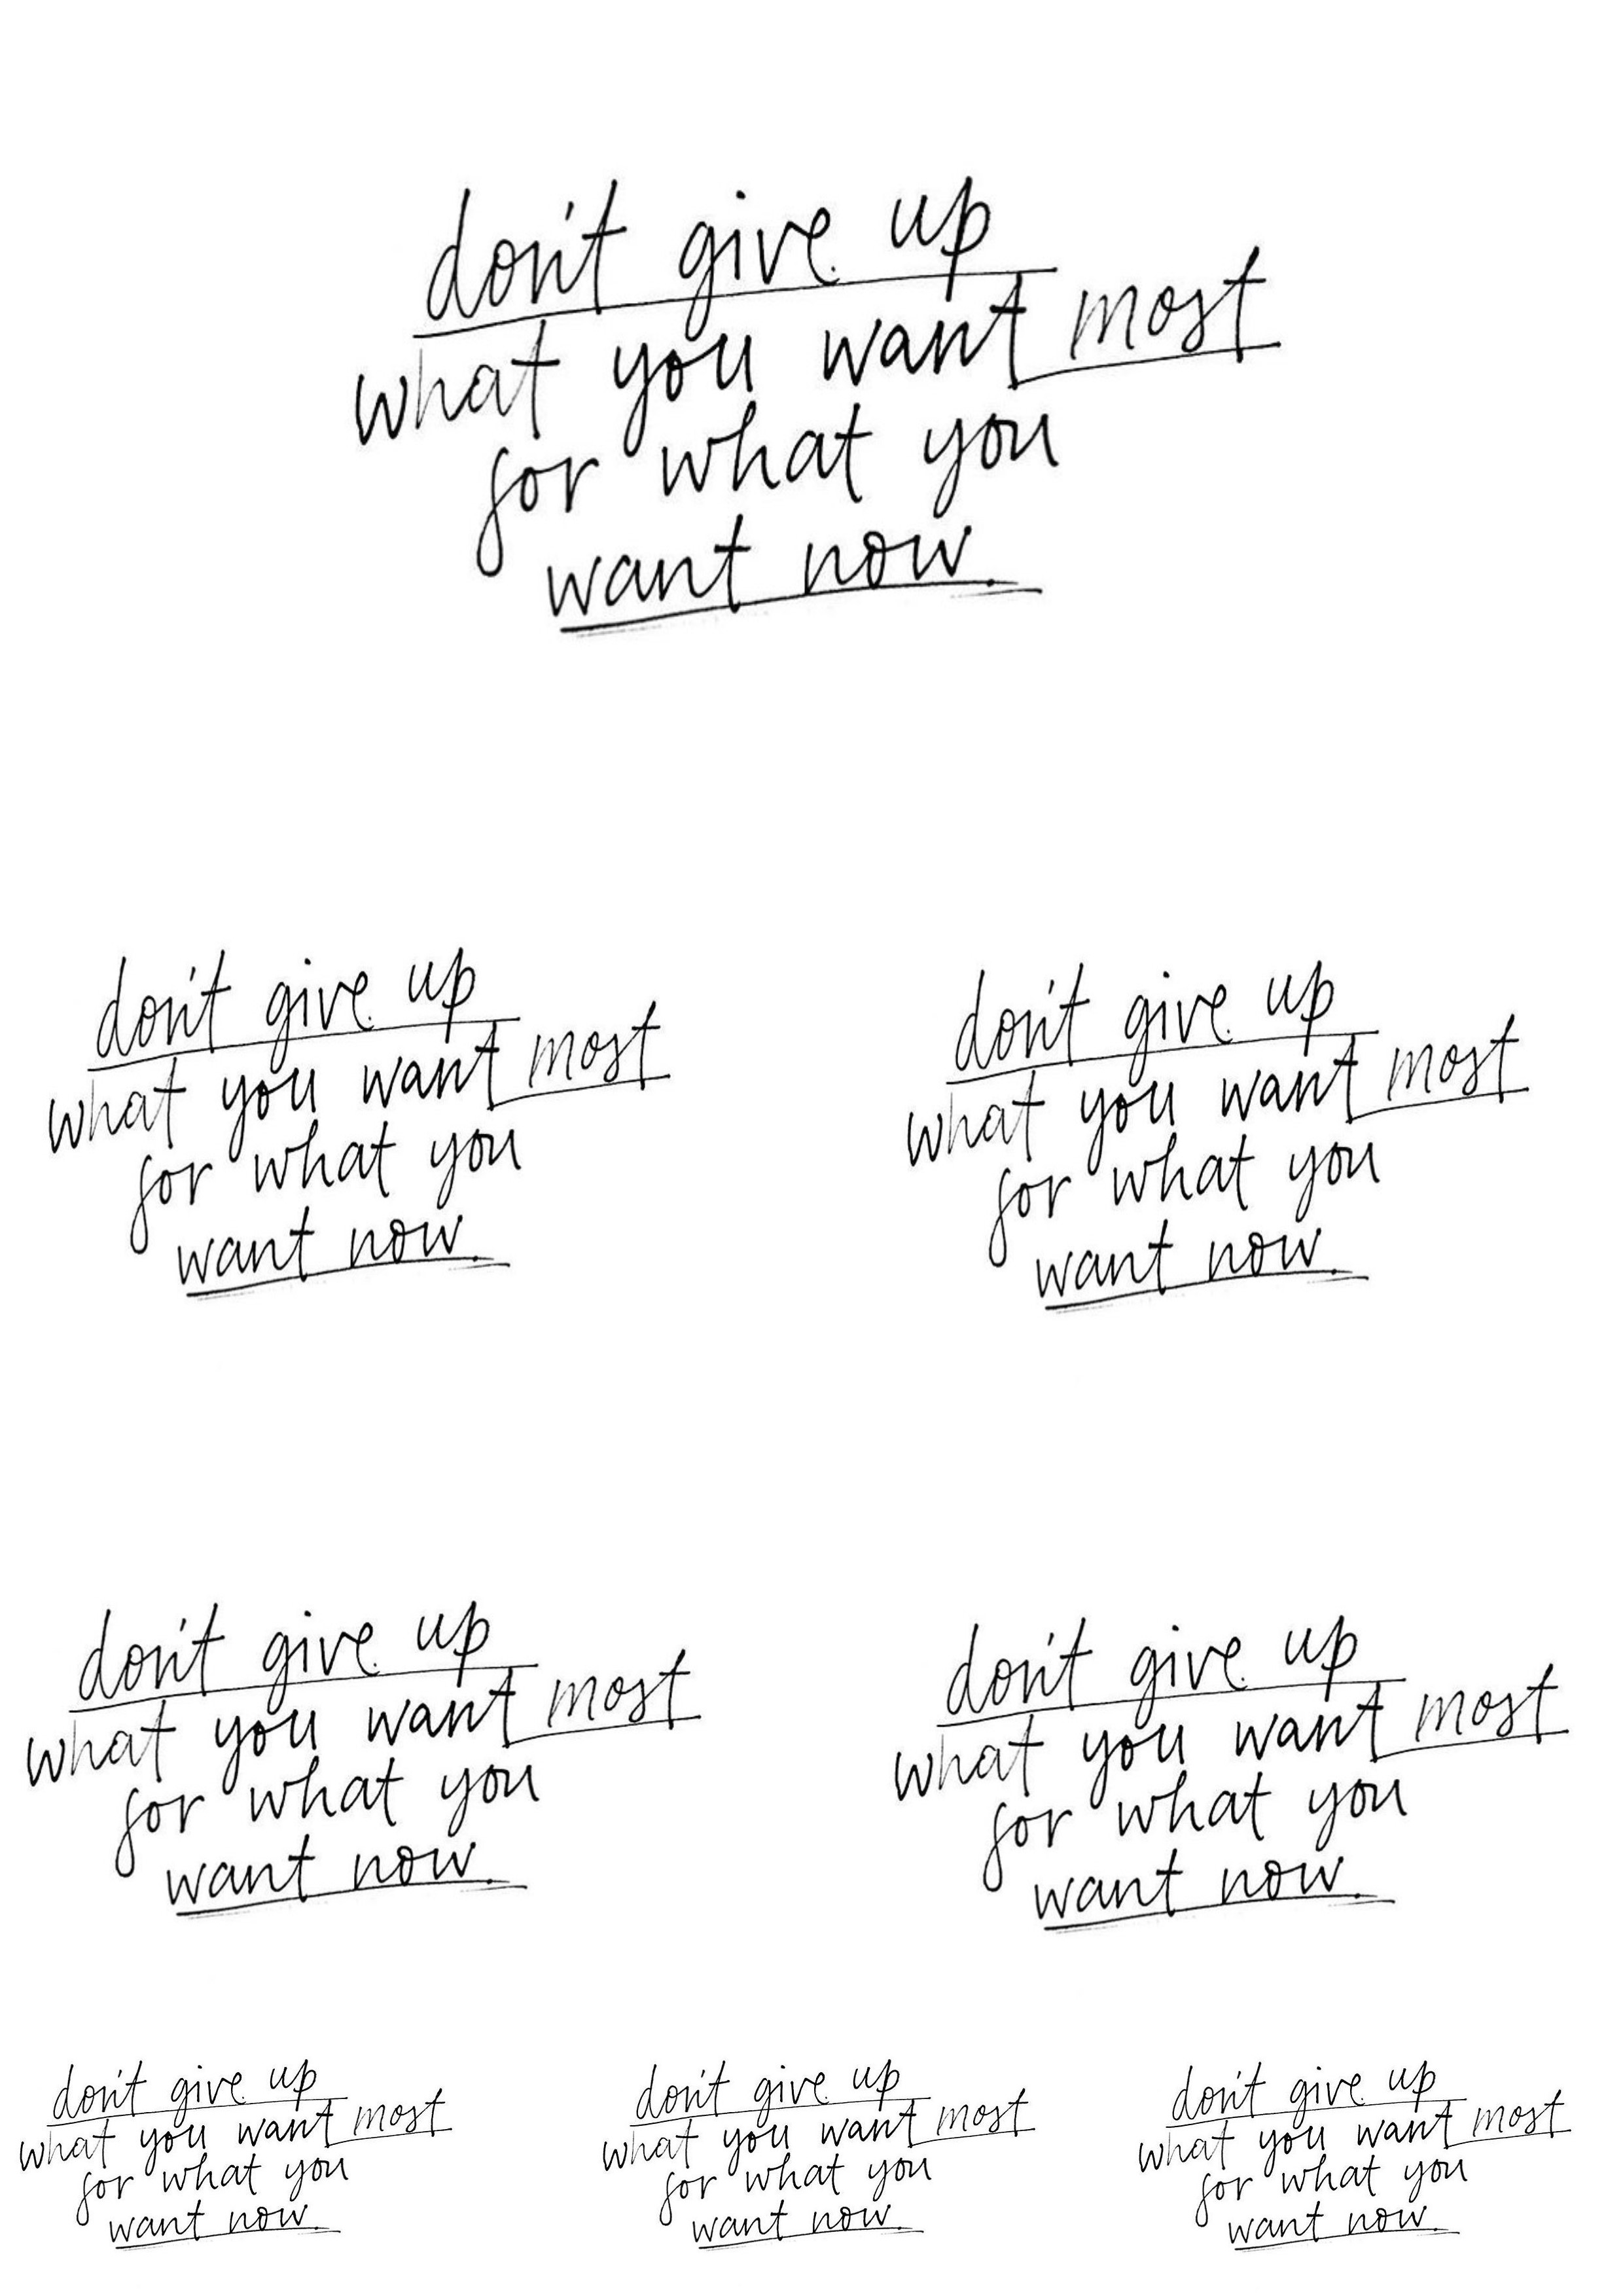 don't give up
what you want most
for what you
want now.
don't give up
what you want most
for what you
want now.
don't give up
what you want most
for what you
want now.
don't give up
what you want most
for what you
want now.
don't give up
what you want most
for what you
want now.
don't give up
what you want most
for what you
want now.
don't give up
what you want most
for what you
want now.
don't give up
what you want most
for what you
want now.